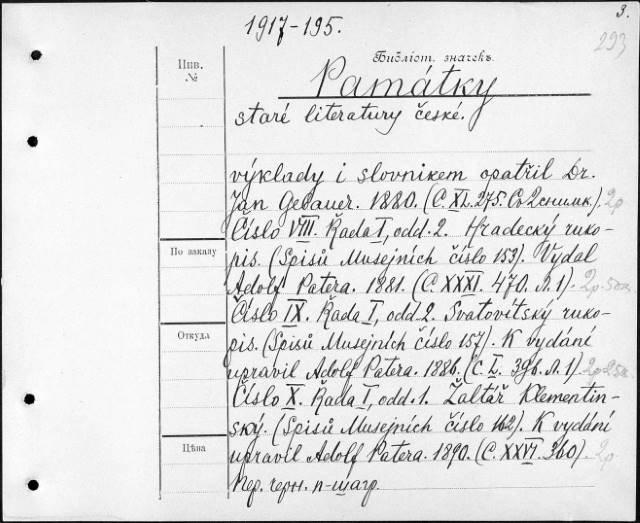 3.
1917-195.
293
Инв.
№
Библіот. значекъ.
Památky
staré literatury české.
výklady i slovnikem opatřil Dr.
Jan Gebauer. 1880. (C. XL. 275. Со 2 снимк.). 2р
Číslo VIII. Řada I, odd. 2. Hradecký ruko-
pis. (Spisů Musejních číslo 153). Vydal
По заказу
Adolf Patera. 1881. (C. XXXI. 470. Л. 1). 2р. 50к.
Číslo IX. Řada I, odd. 2. Svatovítský ruko-
Откуда
pis. (Spisů Musejních číslo 157). K vydání
upravil Adolf Patera. 1886. (C. L. 396. Л. 1) 2р 25к
Číslo X. Řada I, odd. 1. Žaltář Klementin-
ský. (Spisů Musejních číslo 162). K vydání
Цѣна
upravil Adolf Patera. 1890. (C. XXVI. 360) 2р.
Пер. черн. п-шагр.